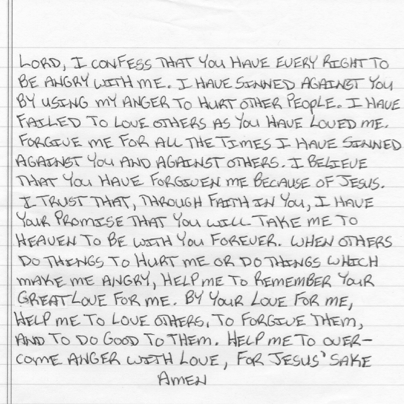 LORD, I CONFESS THAT YOU HAVE EVERY RIGHT TO
BE ANGRY WITH ME. I HAVE SINNED AGAINST YOU
BY USING MY ANGER TO HURT OTHER PEOPLE. I HAVE
FAILED TO LOVE OTHERS AS YOU HAVE LOVED ME.
FORGIVE ME FOR ALL THE TIMES I HAVE SINNED
AGAINST YOU AND AGAINST OTHERS. I BELIEVE
THAT YOU HAVE FORGIVEN ME BECAUSE OF JESUS.
I TRUST THAT, THROUGH FAITH IN YOU, I HAVE
YOUR PROMISE THAT YOU WILL TAKE ME TO
HEAVEN TO BE WITH YOU FOREVER. WHEN OTHERS
DO THINGS TO HURT ME OR DO THINGS WHICH
MAKE ME ANGRY, HELP ME TO REMEMBER YOUR
GREAT LOVE FOR ME. BY YOUR LOVE FOR ME,
HELP ME TO LOVE OTHERS, TO FORGIVE THEM,
AND TO DO GOOD TO THEM. HELP ME TO OVER-
COME ANGER WITH LOVE, FOR JESUS' SAKE
AMEN